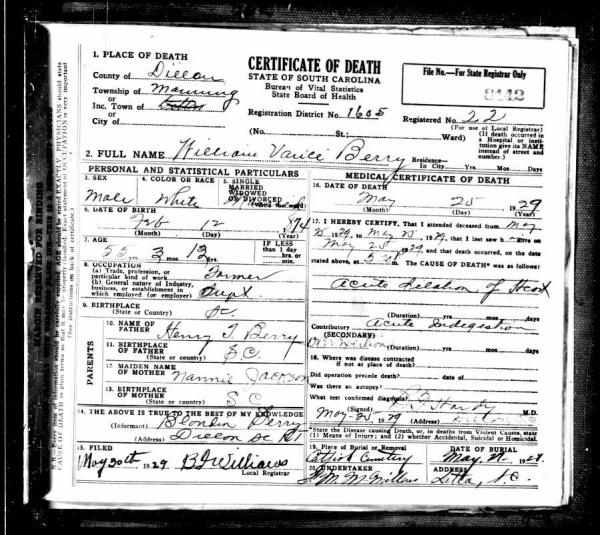 1. PLACE OF DEATH
County of Dillon
Township of Manning
or
Inc. Town of
or
City of
CERTIFICATE OF DEATH
STATE OF SOUTH CAROLINA
Bureau of Vital Statistics
State Board of Health
File No.—For State Registrar Only
8442
Registration District No. 1605
Registered No. 22
(For use of Local Registrar)
(No. St.; Ward)
(If death occurred in a Hospital or institution give its NAME instead of street and number.)
2. FULL NAME William Vance Berry
Residence—
In City Yrs. Mos. Days
PERSONAL AND STATISTICAL PARTICULARS
3. SEX
Male
4. COLOR OR RACE
White
5. SINGLE
MARRIED
WIDOWED
OR DIVORCED
(Write the word)
6. DATE OF BIRTH
Feb 12 874
(Month) (Day) (Year)
7. AGE
55 yrs. 3 mos. 13 ds.
IF LESS than 1 day
hrs. or min.
8. OCCUPATION
(a) Trade, profession, or particular kind of work Farmer
(b) General nature of Industry, business, or establishment in which employed (or employer) Supt.
9. BIRTHPLACE
(State or County) SC.
PARENTS
10. NAME OF FATHER Henry T Berry
11. BIRTHPLACE OF FATHER S.C.
(State or country)
12. MAIDEN NAME OF MOTHER Nannie Jackson
13. BIRTHPLACE OF MOTHER S.C.
(State or country)
14. THE ABOVE IS TRUE TO THE BEST OF MY KNOWLEDGE
(Informant) Blondin Berry
(Address) Dillon SC R1
15. FILED
May 30th 1929 BJ Williams
Local Registrar
MEDICAL CERTIFICATE OF DEATH
16. DATE OF DEATH
May 25 1929
(Month) (Day) (Year)
17. I HEREBY CERTIFY, That I attended deceased from May
25 1929, to May 25 1929, that I last saw h alive on
May 25 1929, and that death occurred, on the date
stated above, at 5 m. The CAUSE OF DEATH* was as follows:
Acute Dilation of Heart
(Duration) yrs. mos. days
Contributory Acute Indigestion
(SECONDARY)
(Duration) yrs. mos. days
18. Where was disease contracted
if not at place of death?
Did operation precede death? date
Was there an autopsy?
What test confirmed diagnosis?
(Signed) Hardy M.D.
May 25 1929 (Address)
* State the Disease causing Death, or, in deaths from Violent Causes, state
(1) Means of Injury; and (2) whether Accidental, Suicidal or Homicidal.
19. Place of Burial or Removal
Cemetery
DATE OF BURIAL
May
20. UNDERTAKER
ADDRESS